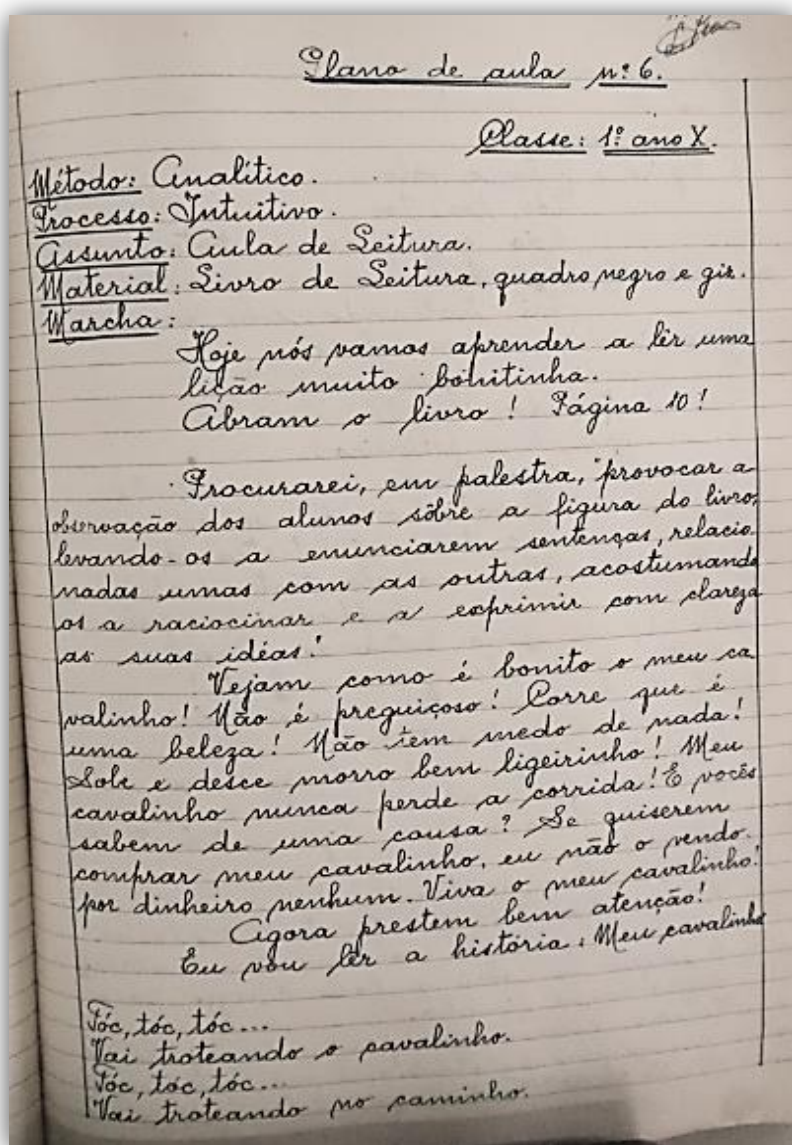 Plano de aula n.º 6.
Classe: 1.º ano X.
Método: Analítico.
Processo: Intuitivo.
Assunto: Aula de Leitura.
Material: Livro de Leitura, quadro negro e giz.
Marcha:
Hoje nós vamos aprender a lêr uma
lição muito bonitinha.
Abram o livro! Página 10!
Procurarei, em palestra, provocar a
observação dos alunos sôbre a figura do livro,
levando-os a enunciarem sentenças, relacio
nadas umas com as outras, acostumando
os a raciocinar e a exprimir com clareza
as suas idéas!
Vejam como é bonito o meu ca
valinho! Não é preguiçoso! Corre que é
uma beleza! Não tem medo de nada!
Sobe e desce morro bem ligeirinho! Meu
cavalinho nunca perde a corrida! E vocês
sabem de uma causa? Se quiserem
comprar meu cavalinho, eu não o vendo
por dinheiro nenhum. Viva o meu cavalinho!
Agora prestem bem atenção!
Eu vou lêr a história: Meu cavalinho
Tóc, tóc, tóc...
Vai troteando o cavalinho.
Tóc, tóc, tóc...
Vai troteando no caminho.